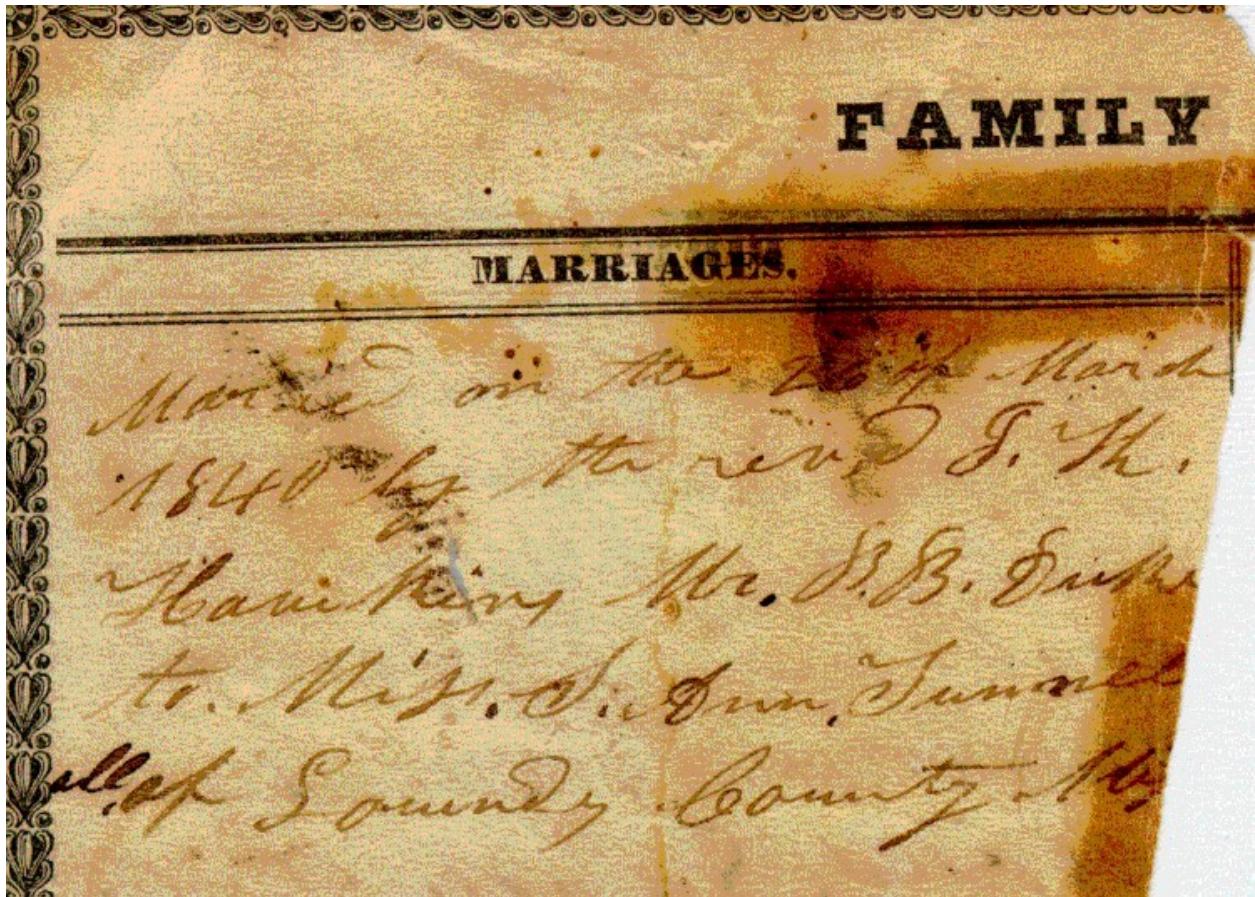 FAMILY
MARRIAGES.
Married on the 26 of March
1840 by the rev,d J. Th.
Hawkins Mr. B. B. Duke
to. Miss. S. Ann. Tunnel
all of Lowndes County